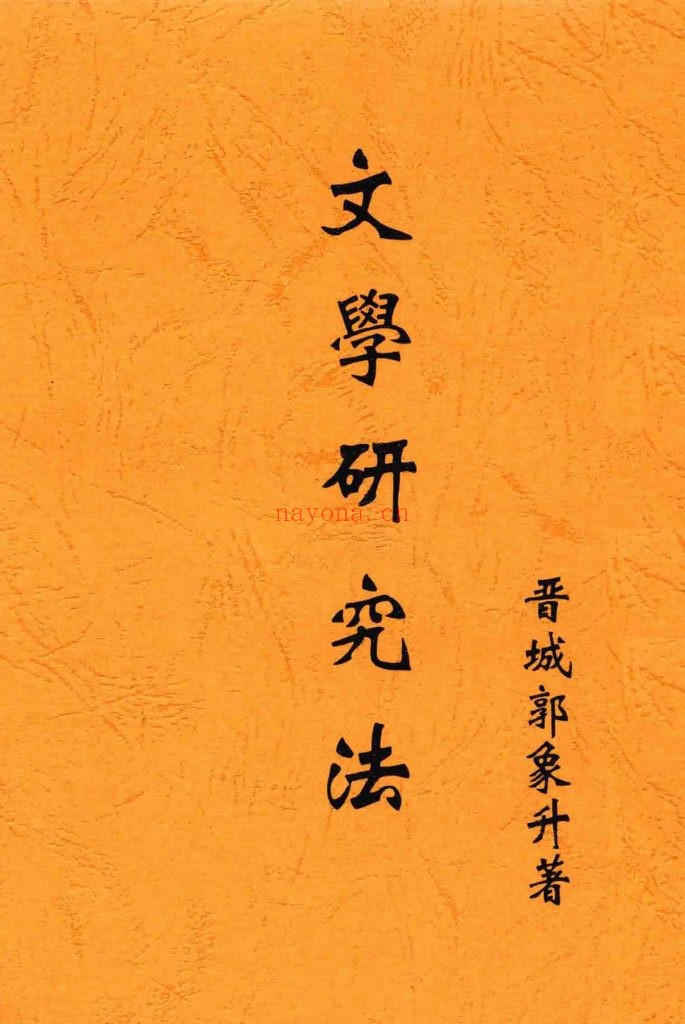 文學研究法
晋城郭象升著
nayona.cn